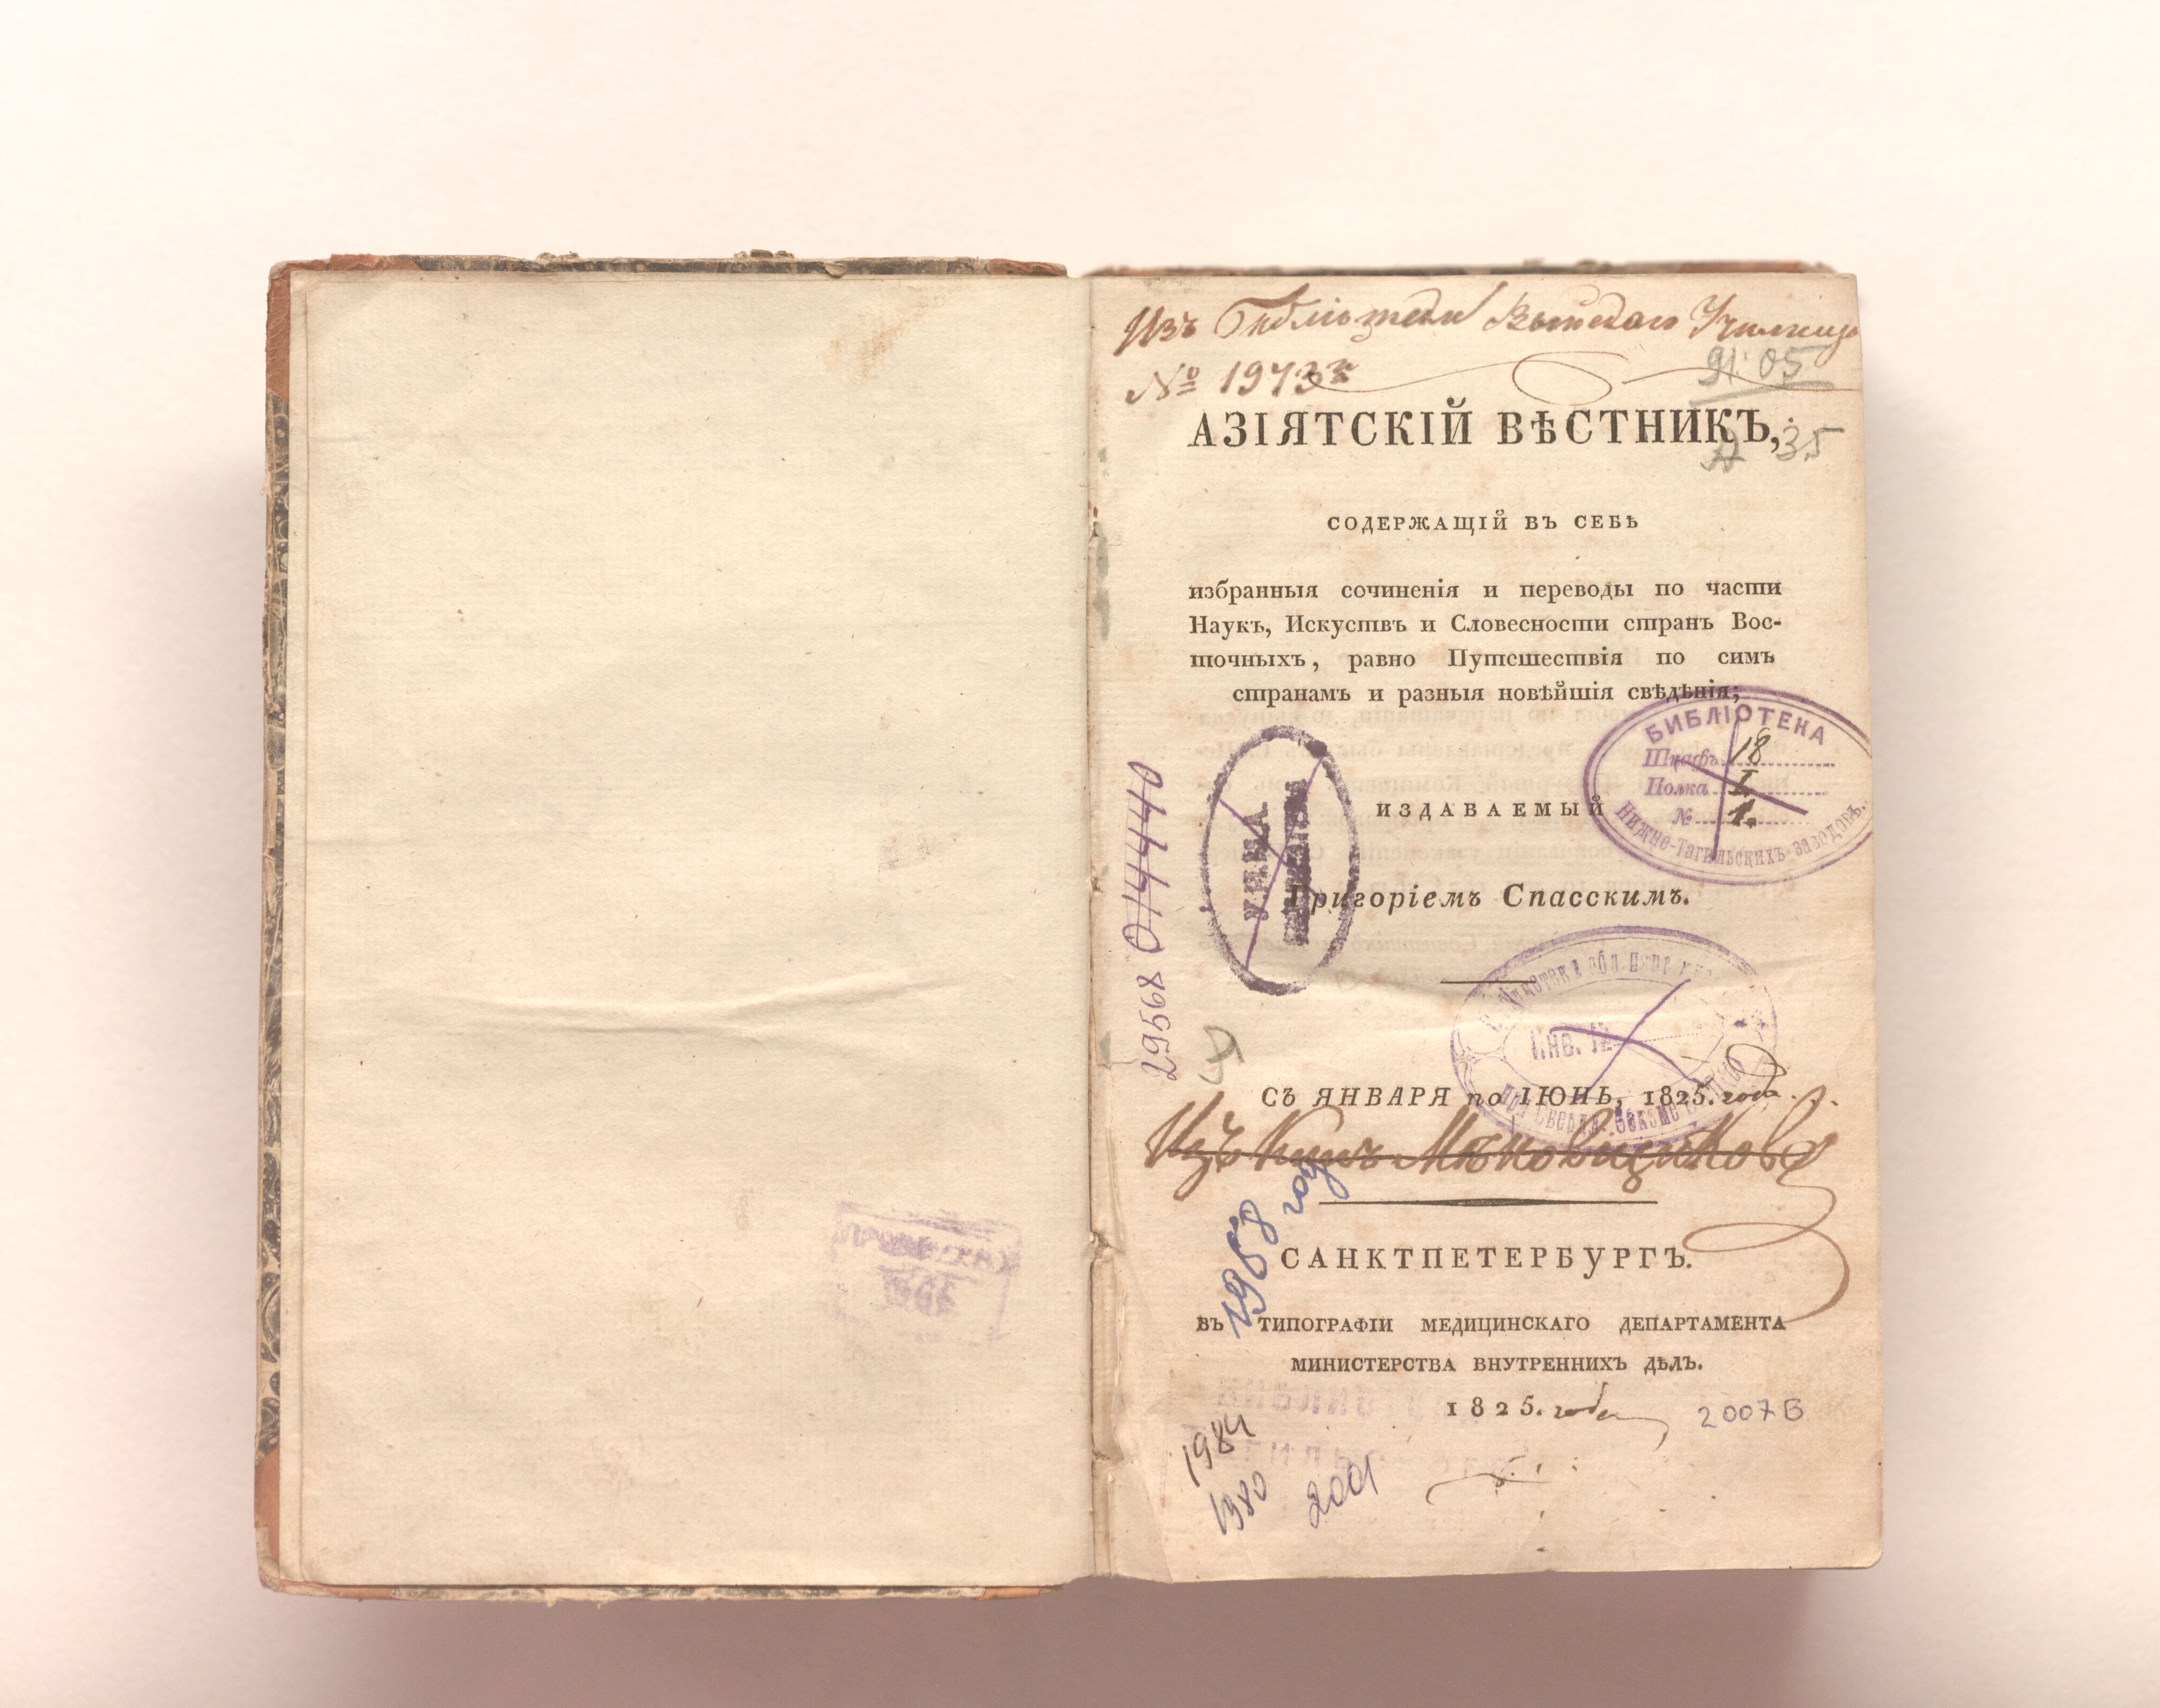 Изъ Библіотеки Выйскаго Училища
№ 1973й
91.05
АЗІЯТСКІЙ ВѢСТНИКЪ,
А 35
СОДЕРЖАЩІЙ ВЪ СЕБѢ
избранныя сочиненія и переводы по части
Наукъ, Искуствъ и Словесности странъ Вос-
точныхъ, равно Путешествія по симъ
странамъ и разныя новѣйшія свѣдѣнія;
БИБЛІОТЕКА
Шкафъ 18
Полка I.
№ 1.
Нижне-Тагильскихъ заводовъ.
ИЗДАВАЕМЫЙ
Григоріемъ Спасскимъ.
29568 014440
Инв. №
СЪ ЯНВАРЯ по ІЮНЬ, 1825. года.
Изъ Книгъ Мѣновщикова
1958 год
САНКТПЕТЕРБУРГЪ.
ВЪ ТИПОГРАФІИ МЕДИЦИНСКАГО ДЕПАРТАМЕНТА
МИНИСТЕРСТВА ВНУТРЕННИХЪ ДѢЛЪ.
1825. года
2007 В
1984
1980
2001